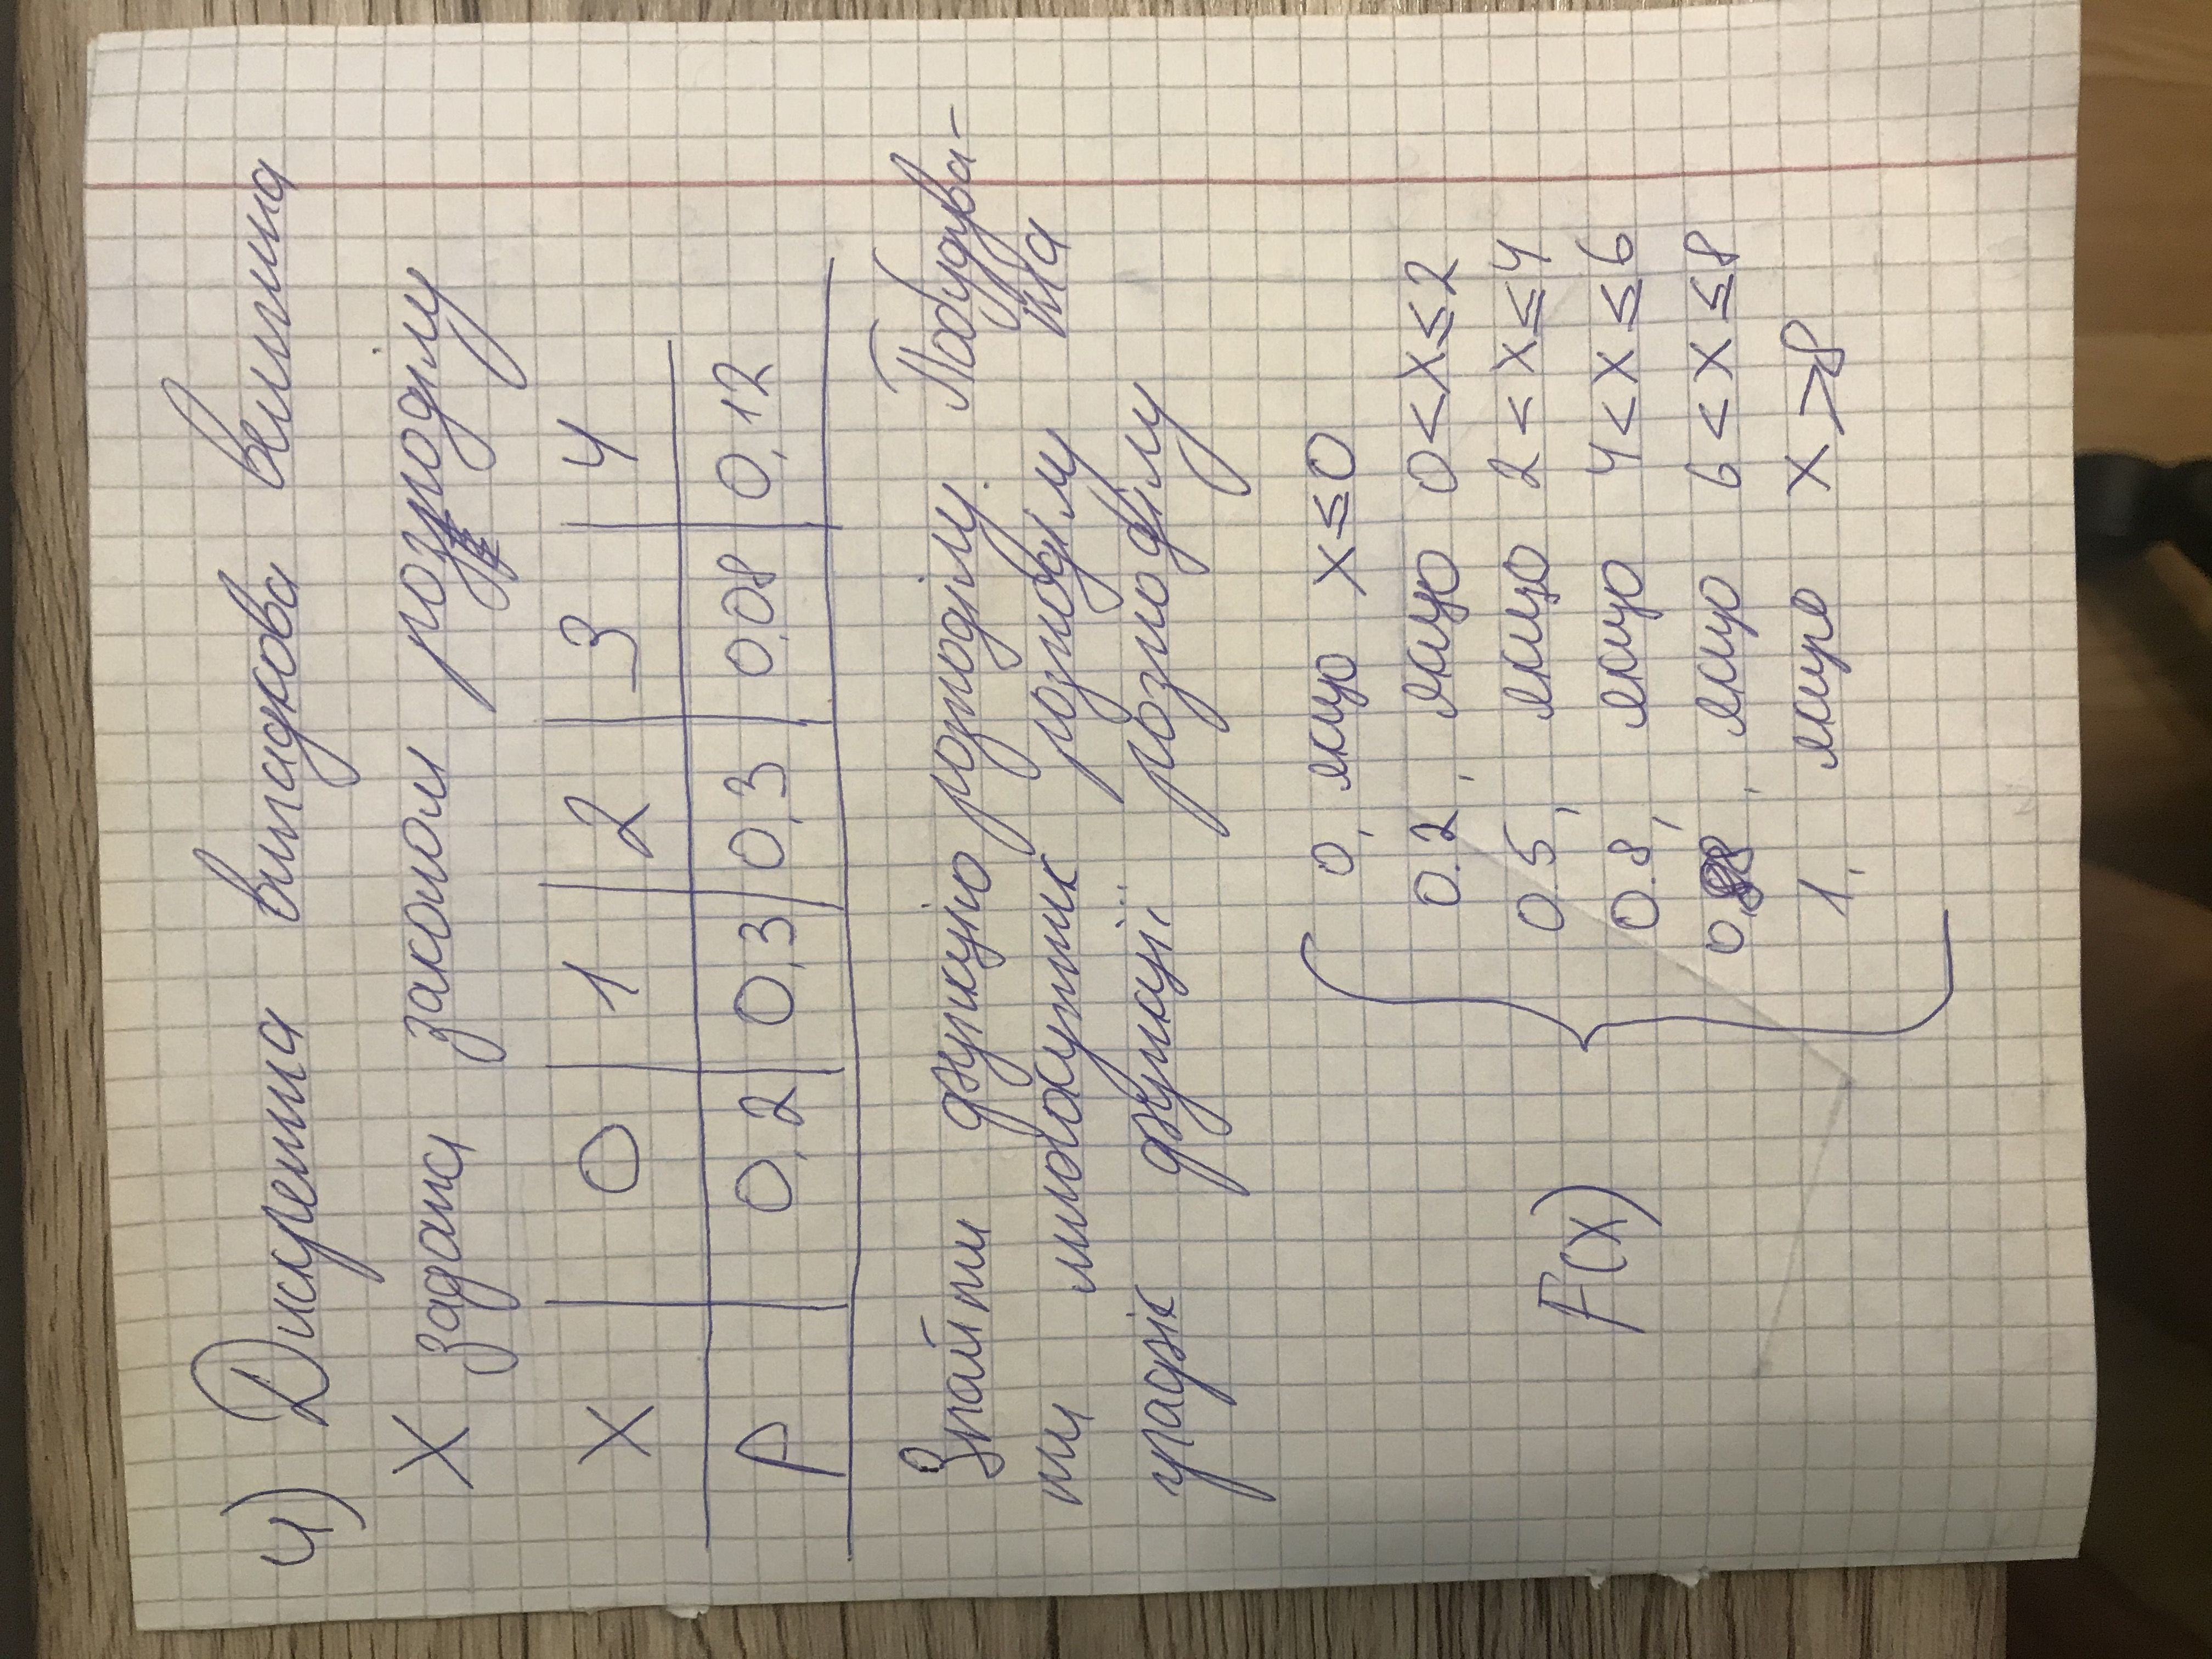 4) Дискретна випадкова величина
X задана законом розподілу
X 0 1 2 3 4
P 0,2 0,3 0,3 0,08 0,12
Знайти функцію розподілу. Побудува-
ти многокутник розподілу та
графік функції розподілу
0, якщо x ≤ 0
0.2, якщо 0 < x ≤ 2
0.5, якщо 2 < x ≤ 4
F(x)
0.8, якщо 4 < x ≤ 6
0,88, якщо 6 < x ≤ 8
1, якщо x > 8